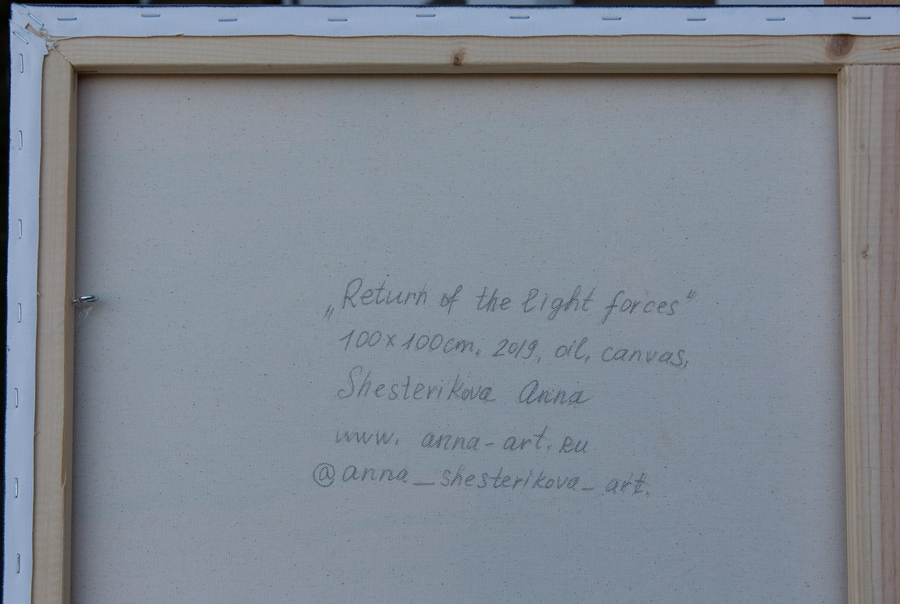 „Return of the light forces"
100x100cm. 2019, oil, canvas,
Shesterikova Anna
www. anna-art.eu
@anna_shesterikova_art.